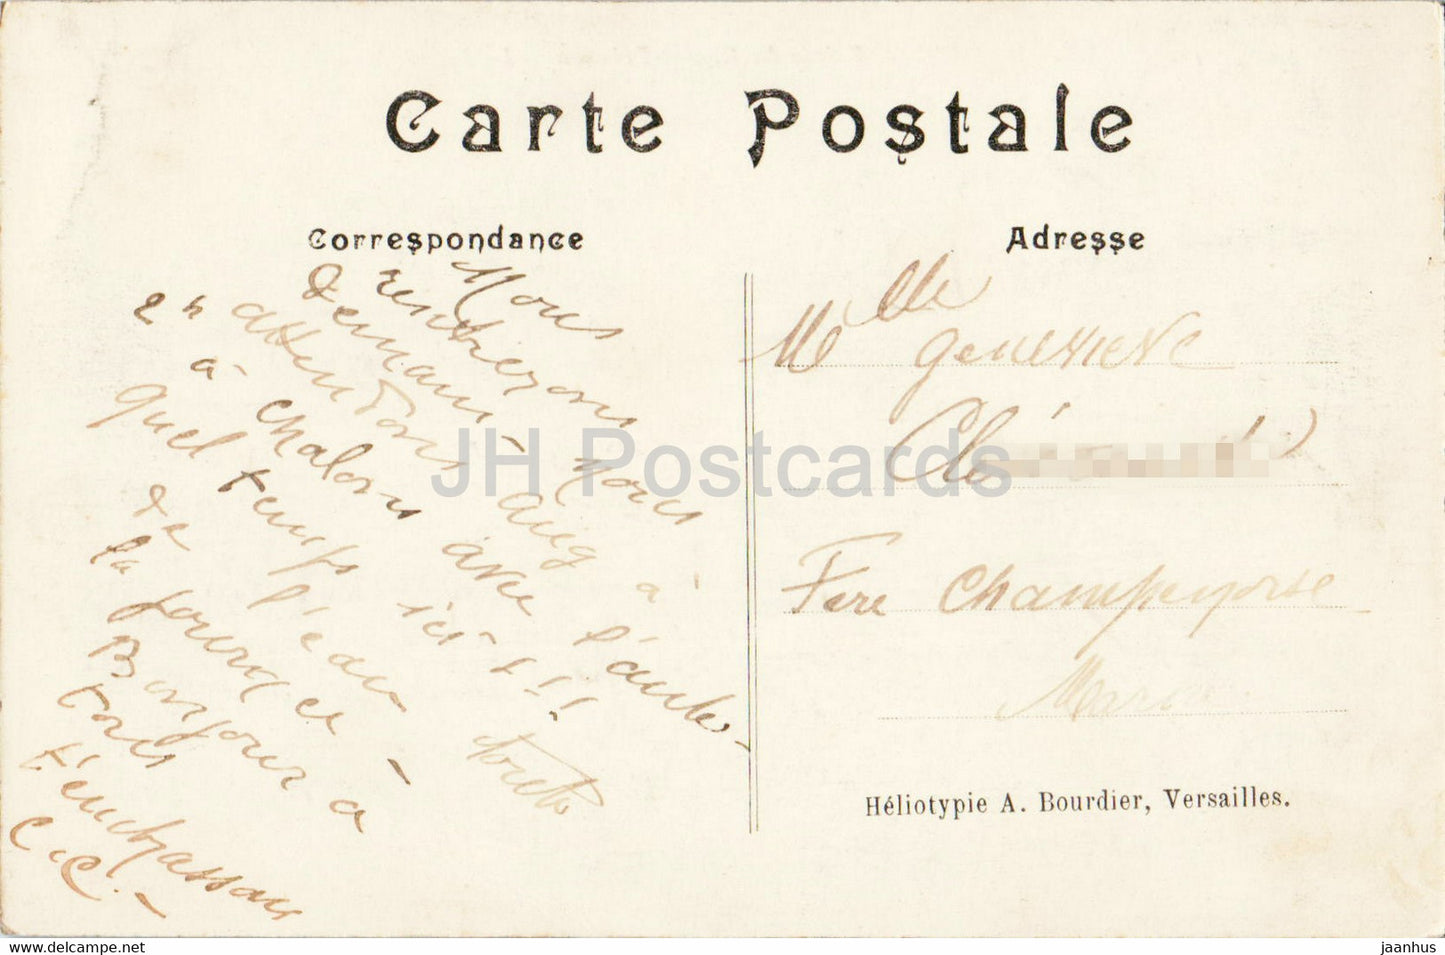 Carte Postale
Correspondance
Nous
rentrerons
demain - Nous
attendons aug à
en
à Chalons avec l'auto -
quel temps ici !!!
de l'eau - toute
la journée -
Bonjour à
tous
t'embrassons
C.C. -
Adresse
Melle Genevieve
Fère Champenoise
Marne
Héliotypie A. Bourdier, Versailles.
JH Postcards
delcampe.net
jaanhus